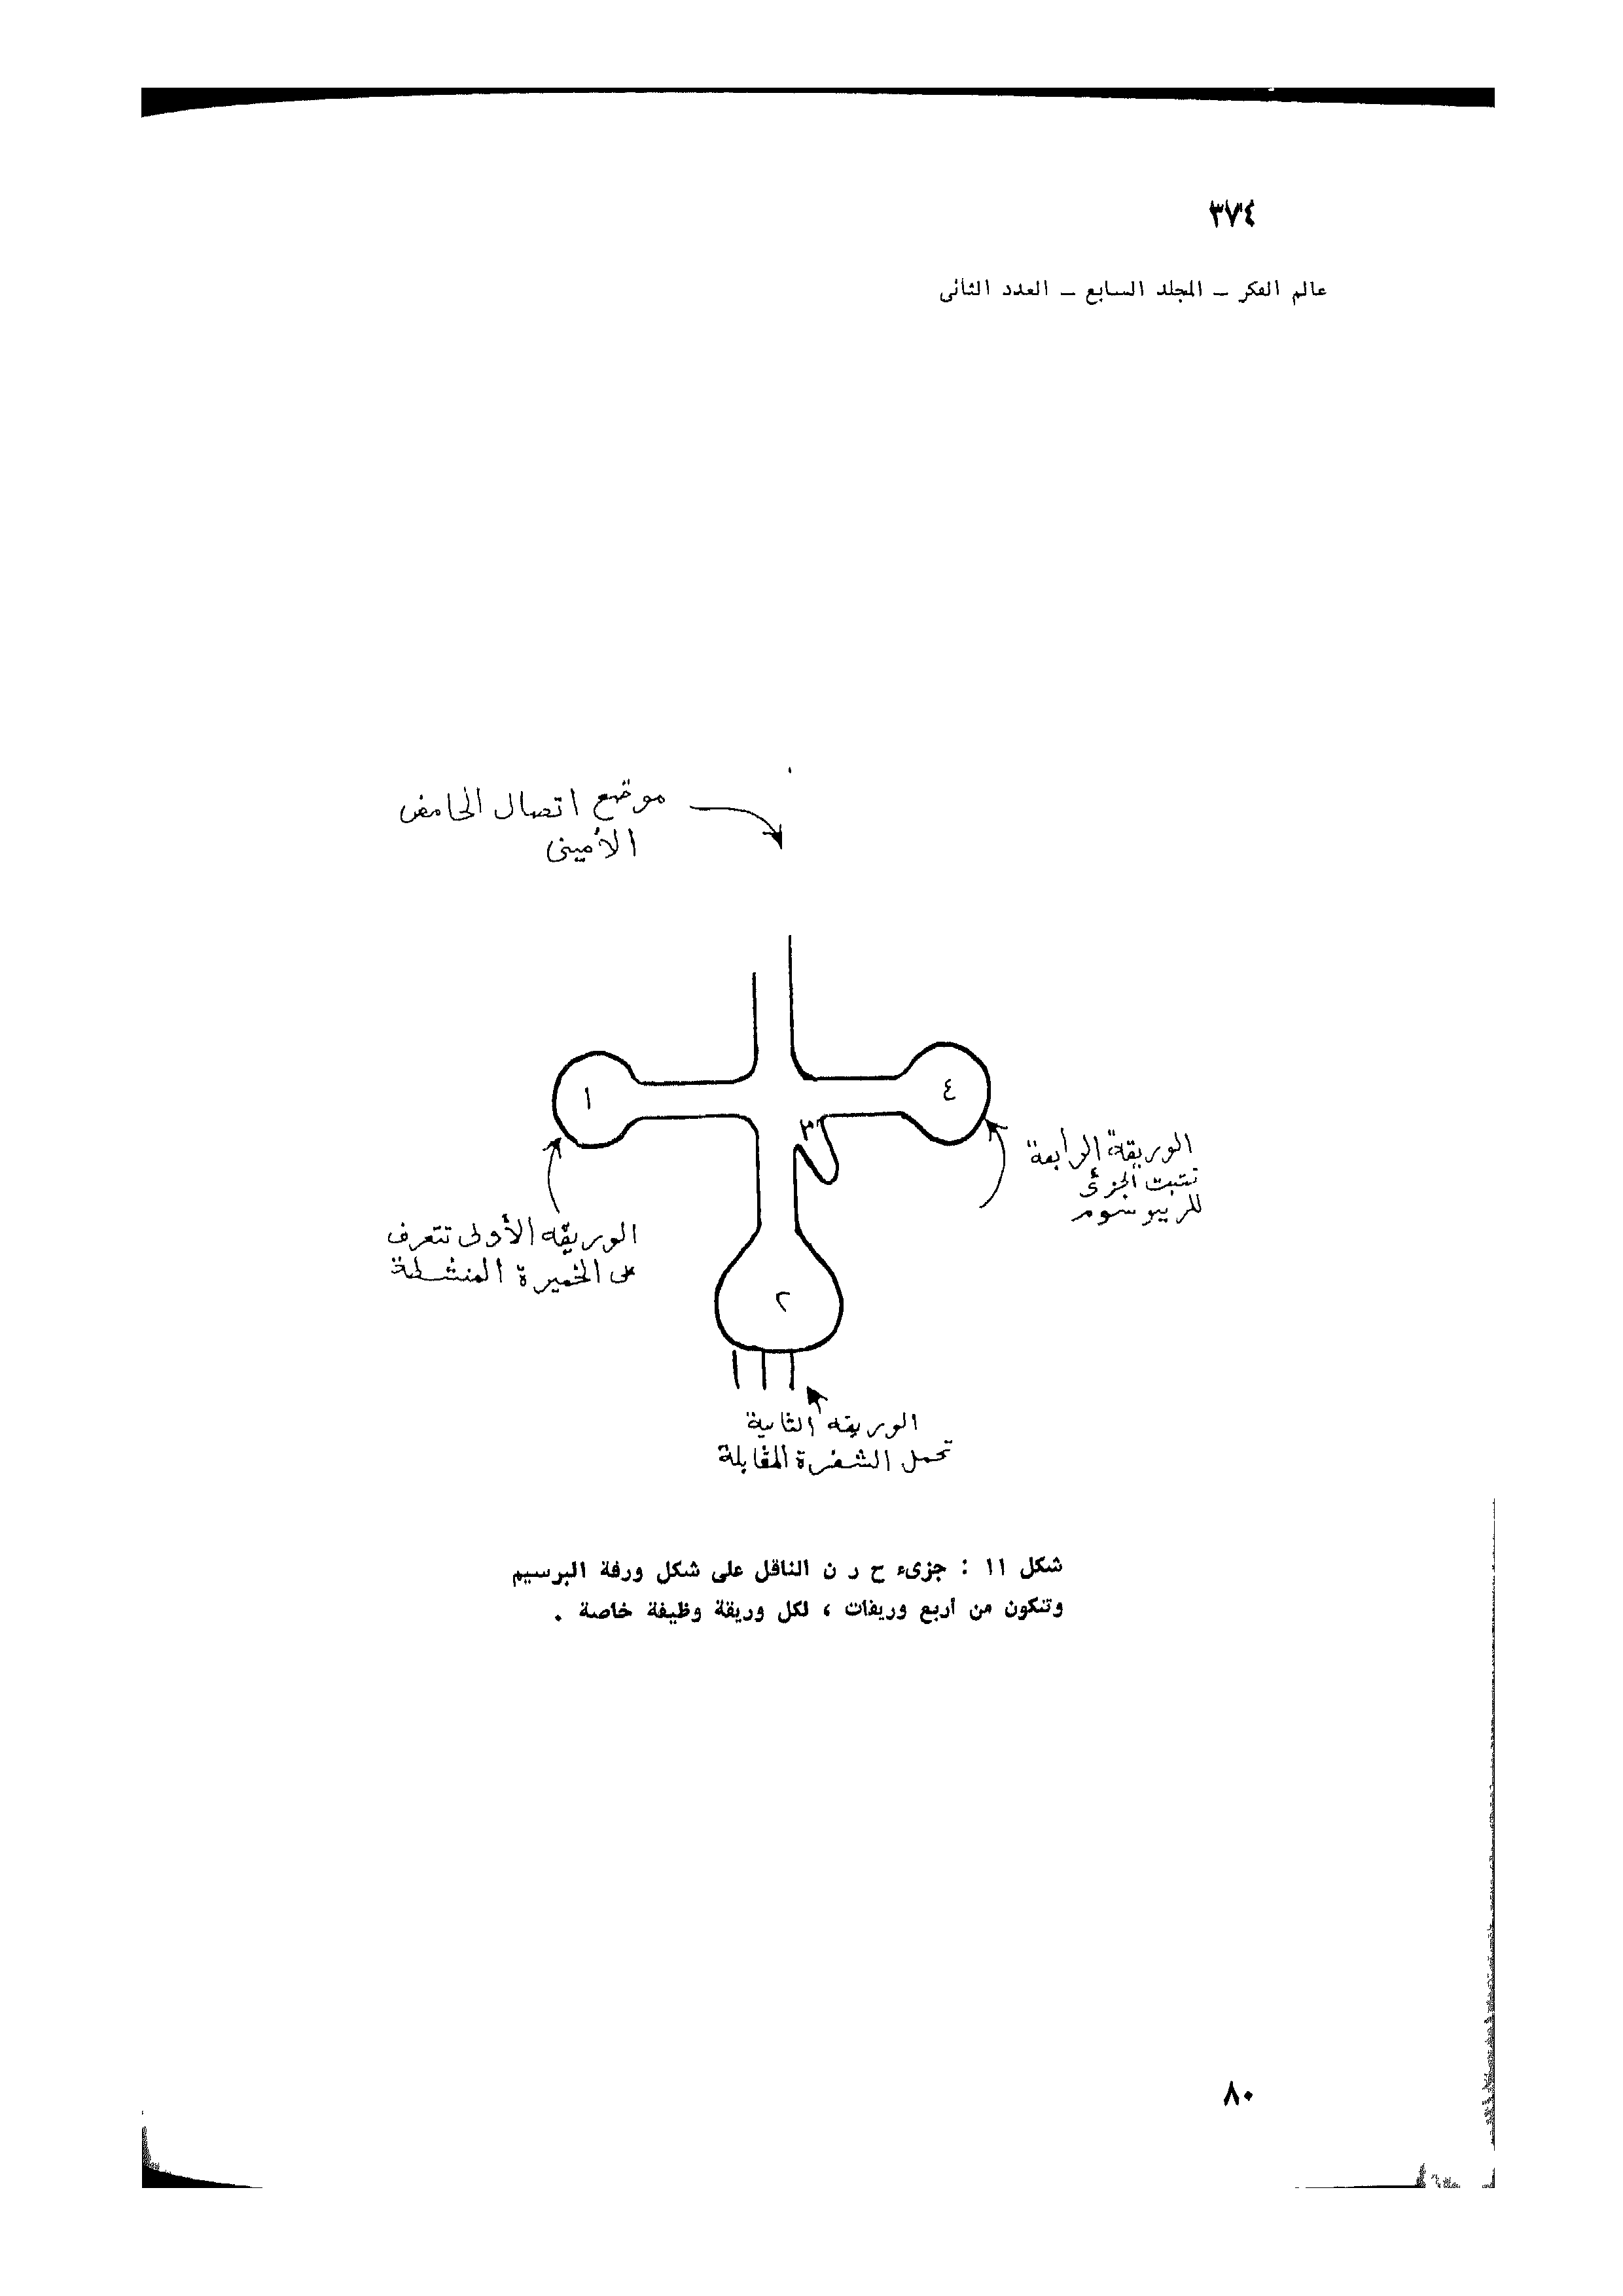 ٣٧٤
عالم الفكر – المجلد السابع – العدد الثانى
موضع اتصال الحامض
الأمينى
١
٤
٣
الوريقة الرابعة
تثبت الجزئ
للريبوسوم
الوريقة الأولى تتعرف
على الخميرة المنشطة
٢
الوريقة الثانية
تحمل الشفرة المقابلة
شكل ١١ : جزىء ح ر ن الناقل على شكل ورقة البرسيم
وتتكون من أربع وريقات ، لكل وريقة وظيفة خاصة .
٨٠